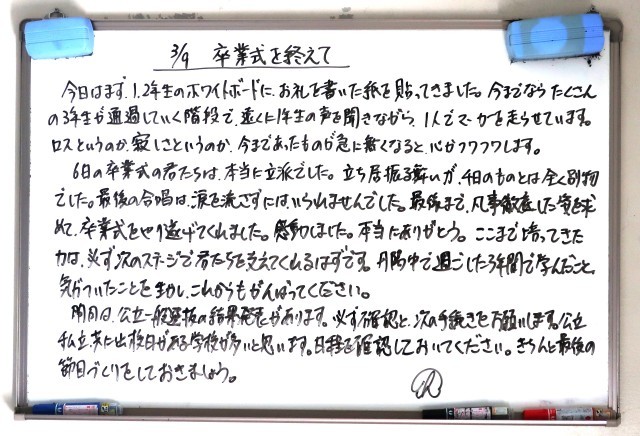 3/9 卒業式を終えて
今日はまず、1,2年生のホワイトボードに、お礼を書いた紙を貼ってきました。今までならたくさん
の3年生が通過していく階段で、遠くに1年生の声を聞きながら、1人でマーカーを走らせています。
ロスというのか、寂しさというのか、今まであたものが急に無くなると、心がフワフワします。
6日の卒業式の君たちは、本当に立派でした。立ち居振る舞いが、4日のものとは全く別物
でした。最後の合唱は、涙を流さずにはいられませんでした。最後まで、凡事徹底した姿を求
めて、卒業式をやり遂げてくれました。感動しました。本当にありがとう。ここまで培ってきた
力は、必ず次のステージで君たちを支えてくれるはずです。丹陽中で過ごした3年間で学んだこと、
気がついたことを生かし、これからもがんばってください。
明日は、公立一般選抜の結果発表があります。必ず確認と、次の手続きをお願いします。公立
私立共に出校日がある学校が多いと思います。日程を確認しておいてください。きちんと最後の
節目づくりをしておきましょう。